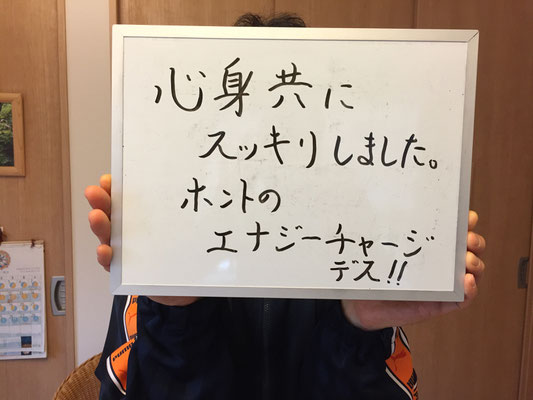 心身共に
スッキリしました。
ホントの
エナジーチャージ
デス!!